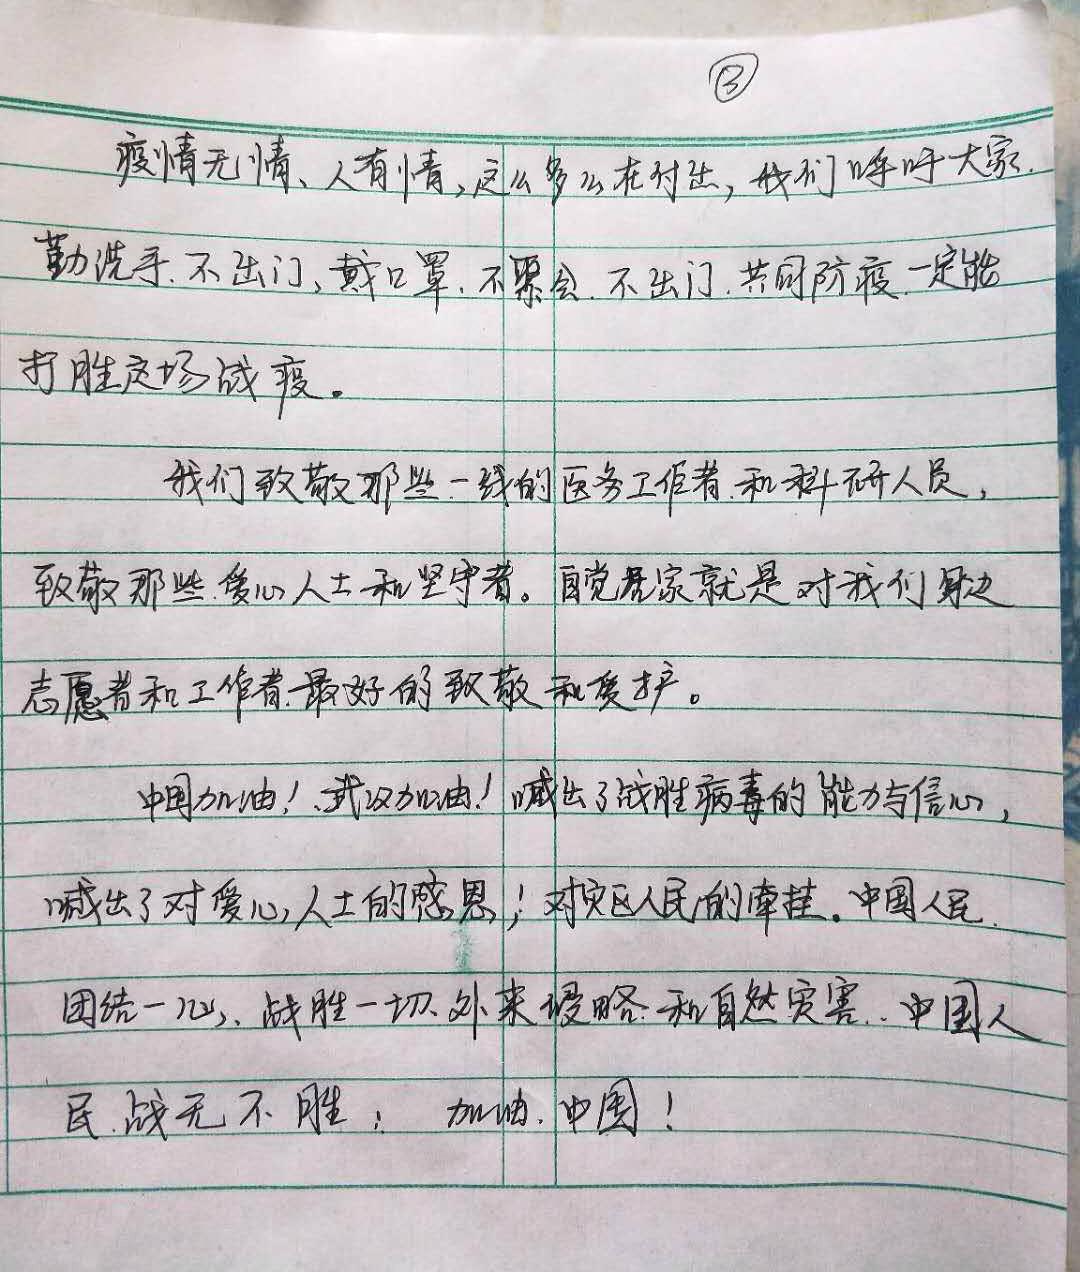 ③
疫情无情、人有情，这么多么在付出，我们呼吁大家.
勤洗手.不出门、戴口罩.不聚会.不出门.共同防疫.一定能
打胜这场战疫。
我们致敬那些一线的医务工作者.和科研人员，
致敬那些爱心人士和坚守者。自觉居家就是对我们身边
志愿者和工作者.最好的致敬和爱护。
中国加油！武汉加油！喊出了战胜病毒的能力与信心，
喊出了对爱心人士的感恩；对灾区人民的牵挂.中国人民.
团结一心、战胜一切.外来侵略.和自然灾害..中国人
民.战无不胜； 加油.中国！